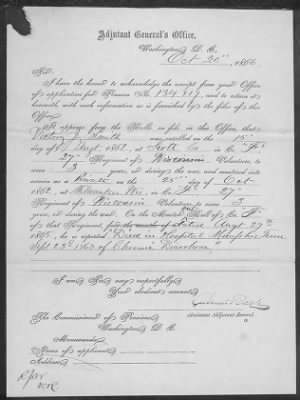 Adjutant General's Office,
Washington, D. C.
Oct 20th, 1866
Sir:
I have the honor to acknowledge the receipt from your Office
of application for Pension No. 134,817, and to return it
herewith, with such information as is furnished by the files of this
Office.
It appears from the Rolls on file in this Office, that
was enrolled on the 15th
day of Augt, 1862, at Co. in Co. "F",
27th Regiment of Wisconsin Volunteers, to serve
3 years, or during the war, and mustered into
service as a Private on the 25th day of Oct
1862, at Milwaukee Wis, in Co. "F", 27th
Regiment of Wisconsin Volunteers, to serve 3
years, or during the war. On the Muster Roll of Co. "F"
of that Regiment, for the month of dated Augt 29th
1865, he is reported "Died in Hospital Memphis Tenn
Sept 23d 1863 of Chronic Diarrhoea"
I am, Sir, very respectfully,
Your obedient servant,
Assistant Adjutant General.
The Commissioner of Pensions,
Washington, D. C.
Memoranda:
Name of applicant,
Address,